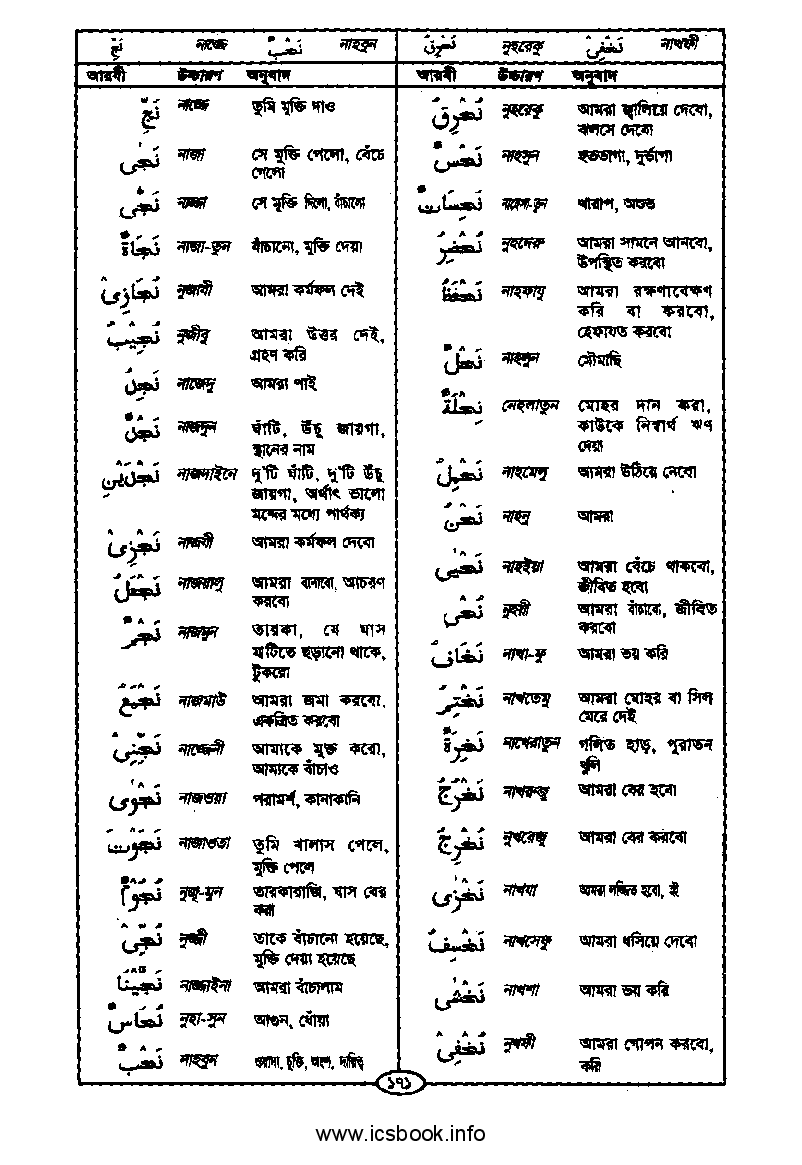 نَجِّ নাজ্জে نَحْبٌ নাহবুন
আরবী উচ্চারণ অনুবাদ
نَجِّ নাজ্জে তুমি মুক্তি দাও
نَجٰى নাজা সে মুক্তি পেলো, বেঁচে
গেলো
نَجّٰى নাজ্জা সে মুক্তি দিলো, বাঁচালো
نَجَاةٌ নাজা-তুন বাঁচানো, মুক্তি দেয়া
نُجَازِىْ নুজাযী আমরা কর্মফল দেই
نُجِيْبُ নুজীবু আমরা উত্তর দেই,
গ্রহণ করি
نَجِدُ নাজেদু আমরা পাই
نَجْدٌ নাজদুন ঘাঁটি, উঁচু জায়গা,
স্থানের নাম
نَجْدَيْنِ নাজদাইনে দু'টি ঘাঁটি, দু'টি উঁচু
জায়গা, অর্থাৎ ভালো
মন্দের মধ্যে পার্থক্য
نَجْزِىْ নাজযী আমরা কর্মফল দেবো
نَجْعَلُ নাজয়ালু আমরা বানাবো, আচরণ
করবো
نَجْمٌ নাজমুন তারকা, যে ঘাস
মাটিতে ছড়ানো থাকে,
টুকরো
نَجْمَعُ নাজমাউ আমরা জমা করবো,
একত্রিত করবো
نَجِّنِىْ নাজ্জেনী আমাকে মুক্ত করো,
আমাকে বাঁচাও
نَجْوٰى নাজওয়া পরামর্শ, কানাকানি
نَجَوْتَ নাজাওতা তুমি খালাস পেলে,
মুক্তি পেলে
نُجُوْمٌ নুজু-মুন তারকারাজি, ঘাস বের
করা
نُجِّىَ নুজ্জী তাকে বাঁচানো হয়েছে,
মুক্তি দেয়া হয়েছে
نَجَّيْنَا নাজ্জাইনা আমরা বাঁচালাম
نُحَاسٌ নুহা-সুন আগুন, ধোঁয়া
نَحْبٌ নাহবুন ওয়াদা, চুক্তি, অংশ, দায়িত্ব
نُحْرِقُ নুহরেকু نُخْفِىْ নাখফী
আরবী উচ্চারণ অনুবাদ
نُحْرِقُ নুহরেকু আমরা জ্বালিয়ে দেবো,
ঝলসে দেবো
نَحْسٌ নাহসুন হতভাগা, দুর্ভাগা
نَحِسَاتٌ নাহেসা-তুন খারাপ, অশুভ
نُحْضِرُ নুহদেরু আমরা সামনে আনবো,
উপস্থিত করবো
نَحْفَظُ নাহফাযু আমরা রক্ষণাবেক্ষণ
করি বা করবো,
হেফাযত করবো
نَحْلٌ নাহলুন মৌমাছি
نِحْلَةٌ নেহলাতুন মোহর দান করা,
কাউকে নিস্বার্থ ঋণ
দেয়া
نَحْمِلُ নাহমেলু আমরা উঠিয়ে নেবো
نَحْنُ নাহনু আমরা
نَحْيٰى নাহইয়া আমরা বেঁচে থাকবো,
জীবিত হবো
نُحْىِ নুহয়ী আমরা বাঁচাবো, জীবিত
করবো
نَخَافُ নাখা-ফু আমরা ভয় করি
نَخْتِمُ নাখতেমু আমরা মোহর বা সিল
মেরে দেই
نَخِرَةٌ নাখেরাতুন গলিত হাড়, পুরাতন
খুলি
نَخْرُجُ নাখরুজু আমরা বের হবো
نُخْرِجُ নুখরেজু আমরা বের করবো
نَخْزٰى নাখযা আমরা লজ্জিত হবো, হই
نَخْسِفُ নাখসেফু আমরা ধসিয়ে দেবো
نَخْشٰى নাখশা আমরা ভয় করি
نُخْفِىْ নুখফী আমরা গোপন করবো,
করি
১৭১
www.icsbook.info